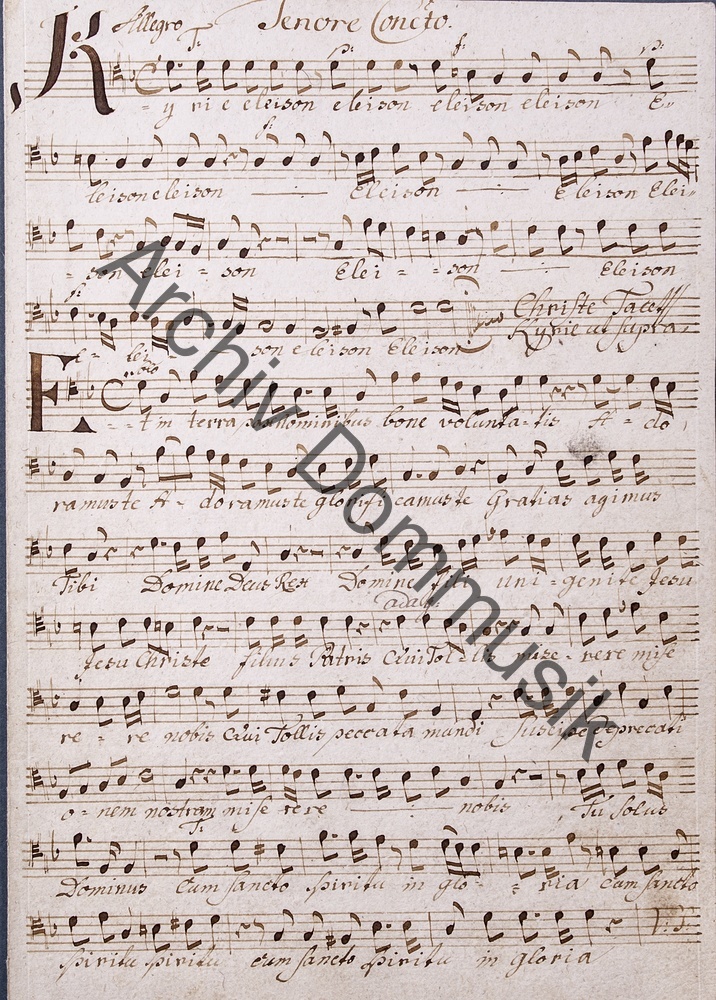 Allegro Tenore Conc̃to.
T: p: f: p:
K
= y ri e eleison eleison eleison eleison E=
f:
leison eleison Eleison Eleison Elei=
= son elei = son Elei = = son Eleison
f: Christe Tacet
e = lei = son eleison Eleison Kyrie ut supra.
E
t in terra hominibus bone volunta = tis A = do
ramus te A = doramus te glorificamus te Gratias agimus
Tibi Domine Deus Rex Domine fili uni = genite Jesu
adag:
Jesu Christe filius Patris Qui Tollis mise = rere mise
re = re nobis Qui Tollis peccata mundi Suscipe deprecati
o = nem nostram mise rere nobis Tu solus
T:
Dominus Cum sancto spiritu in glo = = ria cum sancto
spiritu spiritu cum sancto spiritu in gloria
V: S:
Archiv Dommusik